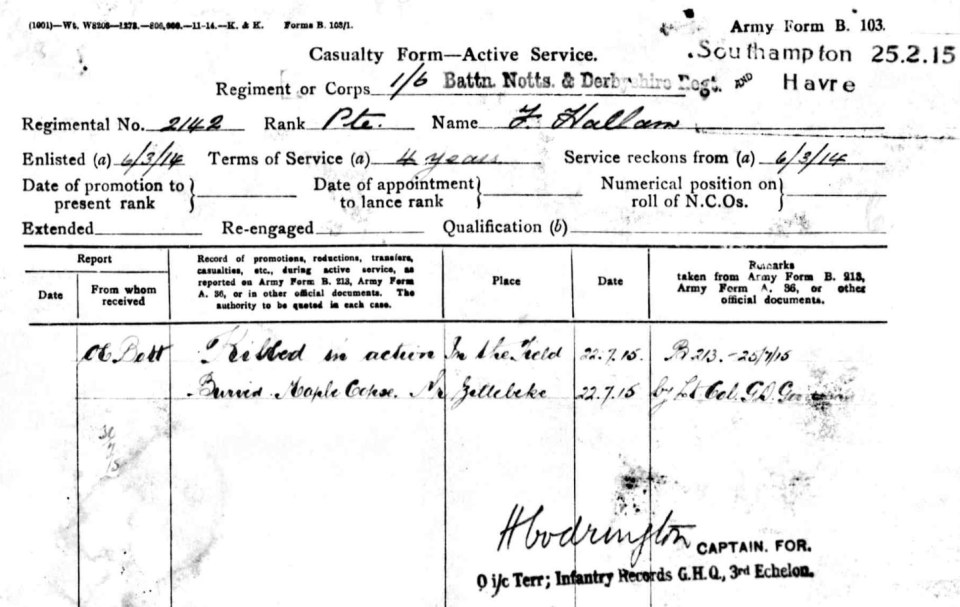 (1001)—Wt. W8208—1278.—800,000.—11-14.—K. & K. Forms B. 103/1.
Army Form B. 103.
Casualty Form—Active Service.
Southampton 25.2.15
Regiment or Corps 1/6 Battn. Notts. & Derbyshire Regt. AND Havre
Regimental No. 2142 Rank Pte. Name F. Hallam
Enlisted (a) 6/3/14 Terms of Service (a) 4 years Service reckons from (a) 6/3/14
Date of promotion to present rank
Date of appointment to lance rank
Numerical position on roll of N.C.Os.
Extended Re-engaged Qualification (b)
Report
Date
From whom received
Record of promotions, reductions, transfers, casualties, etc., during active service, as reported on Army Form B. 213, Army Form A. 36, or in other official documents. The authority to be quoted in each case.
Place
Date
Remarks taken from Army Form B. 213, Army Form A. 36, or other official documents.
Killed in action In the Field 22.7.15. B 213.-25/7/15
Burried Maple Copse. Nr Zillebeke 22.7.15 by Lt Col. G.D.
HCodrington
CAPTAIN. FOR.
O i/c Terr; Infantry Records G.H.Q., 3rd Echelon.